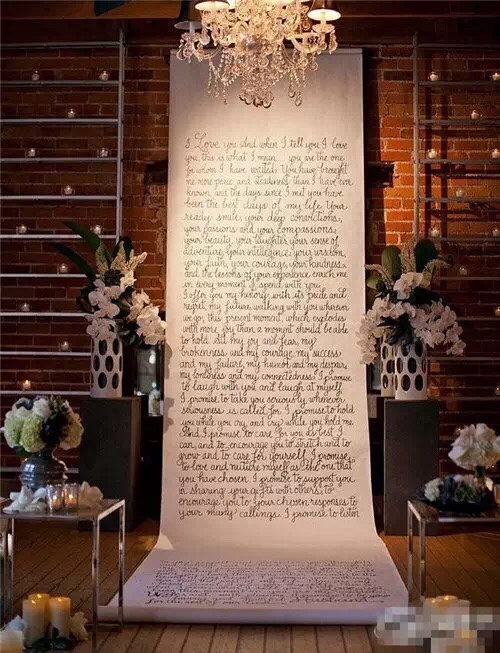 I Love you. And when I tell you I love
you, this is what I mean... you are the one
for whom I have waited. You have brought
me more peace and aliveness than I have ever
known and the days since I met you have
been the best days of my life. Your
ready smile, your deep convictions,
your passions and your compassions,
your beauty, your laughter, your sense of
adventure, your intelligence, your wisdom,
your faith, your courage, your kindness,
and the lessons of your experience enrich me
in every moment I spend with you.
I offer you my history, with its pride and
regret, my future, walking with you wherever
we go, this present moment, which explodes
with more joy than a moment should be able
to hold. All my joy and fear, my
brokenness and my courage, my success
and my failure, my humor and my despair,
my loneliness and my connectedness. I promise
to laugh with you and laugh at myself.
I promise to take you seriously, whenever
seriousness is called for. I promise to hold
you while you cry and cry while you hold
me. And I promise to care for you as best I
can, and to encourage you to stretch and to
grow and to care for yourself. I promise
to love and nurture myself as the one that
you have chosen. I promise to support you
in sharing your gifts with others, to
encourage you to your chosen responses to
your many callings. I promise to listen